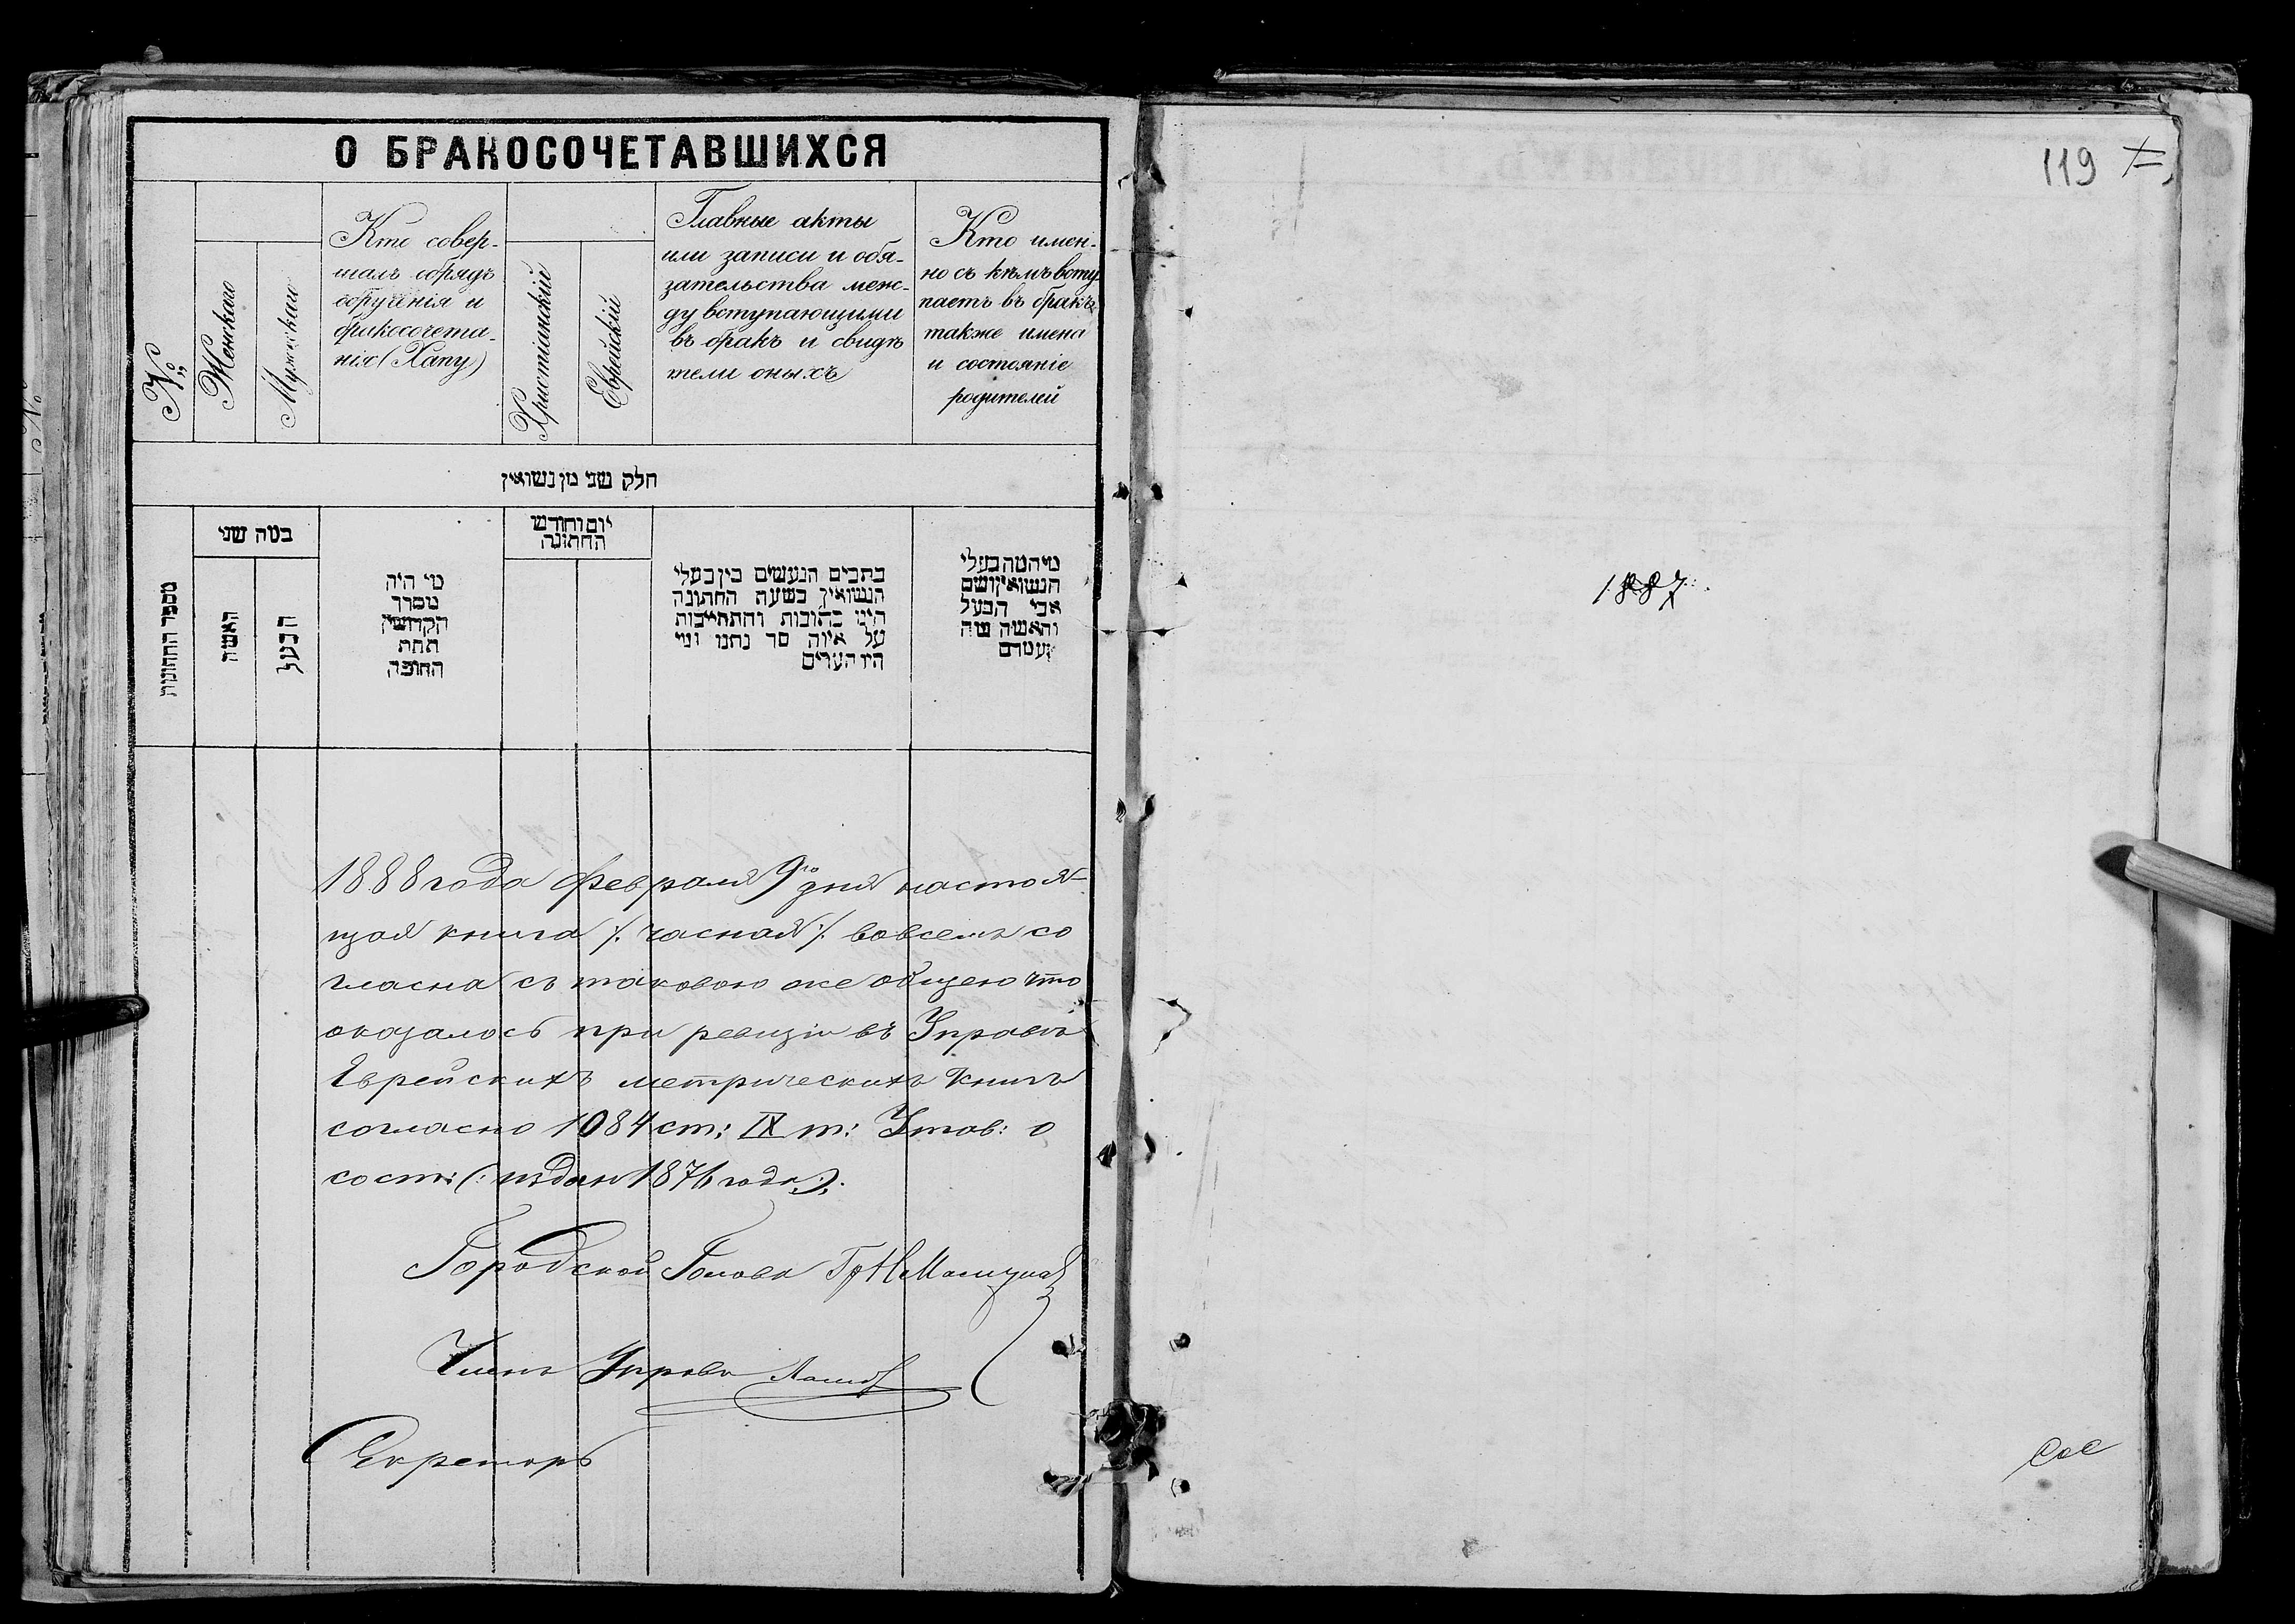 О БРАКОСОЧЕТАВШИХСЯ
№
Женскаго
Мужскаго
Кто совер-
шалъ обрядъ
обрученія и
бракосочета-
нія (Хапу)
Христіанскій
Еврейскій
Главные акты
или записи и обя-
зательства меж-
ду вступающими
въ бракъ и свидѣ
тели оныхъ
Кто имен-
но съ кѣмъ всту
паетъ въ бракъ,
также имена
и состояніе
родителей
חלק שני מן נשואין
מספר החתונות
במה שני
האשה
הבעל
מי היה
מסדר
הקדושין
תחת
החופה
יום וחודש
החתונה
כתבים הנעשים בין בעלי
הנשואין בשעת החתונה
היינו כתובות והתחייבות
על איזה סך נתנו ומי
היו העדים
מי המה בעלי
הנשואין ושם
אבי הבעל
והאשה ומה
מעמדם
1888 года февраля 9го дня настоя-
щая книга /. часная /. вовсемъ со
гласна съ таковою же общею что
оказалось при ревизіи въ Управѣ
Еврейскихъ метрическихъ книгъ
согласно 1084 ст: IX т: Устав: о
сост: (: издан 1876 года :).
Городской Голова
Членъ Управы
Секретарь
119
1887.